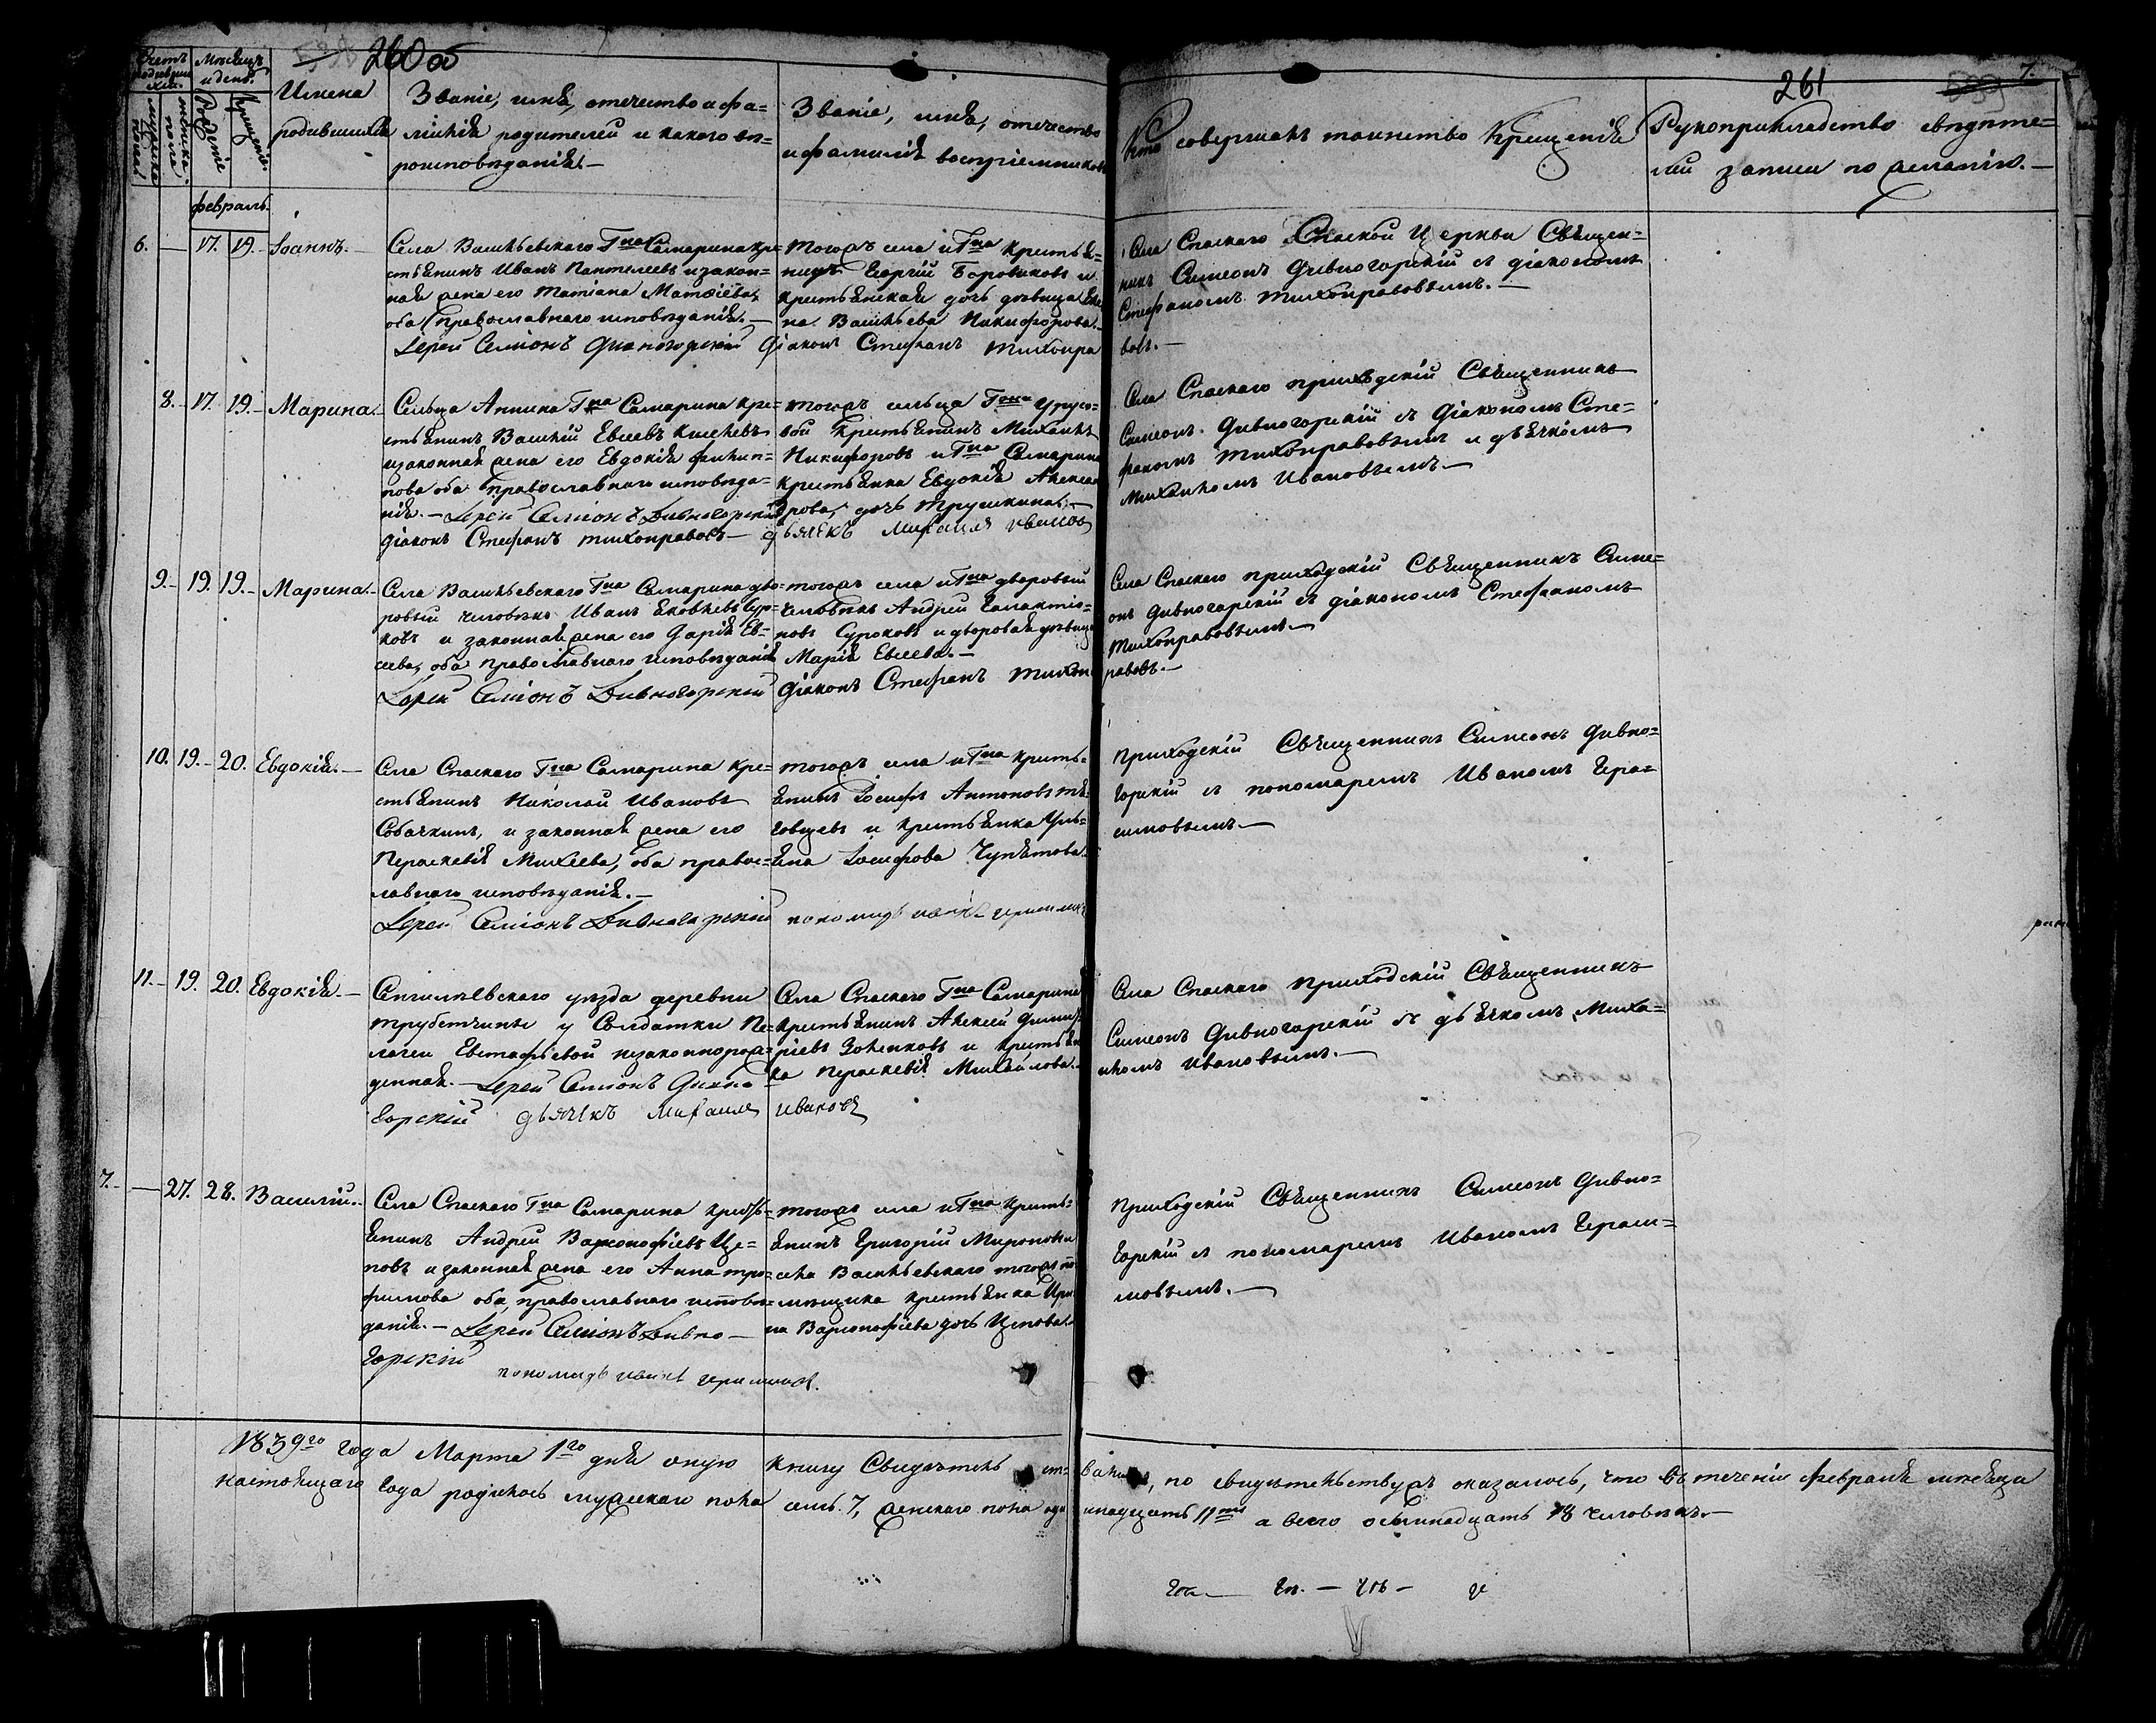 260 об
261
7.
Счетъ родившихся.
мужеска пола
женска пола
Мѣсяцъ и день.
Рожденіе
Крещеніе.
Имена
родившихся
Званіе, имя, отечество и фа=
милія родителей и какого вѣ=
роисповѣданія.—
Званіе, имя, отечество
и фамилія воспріемниковъ
Кто совершалъ таинство Крещенія
Рукоприкладство свидѣте=
лей записи по желанію.—
Февраль.
6. — 17. 19. Іоаннъ.—
Села Васильевскаго Гна Самарина кре=
стьянинъ Иванъ Пантелеевъ и закон=
ная жена его Татіана Матѳіева,
оба православнаго исповѣданія.—
Іерей Симіонъ Дивногорскій Діаконъ Стефанъ Тихонра
вовъ.—
тогожъ села и Гна крестья=
нинъ Георгій Боровиковъ и
крестьянская дочь дѣвица Еле
на Васильева Никифорова.
Села Спаскаго Спаской Церкви Священ=
никъ Симеонъ Дивногорскій съ діакономъ
Стефаномъ Тихонравовымъ.—
8. 17. 19. Марина.
Сельца Аннина Гна Самарина кре=
стьянинъ Василій Евсеевъ
и законная жена его Евдокія Филип=
пова оба православнаго исповѣда=
нія.— Іерей Симіонъ Дивногорскій
діаконъ Стефанъ Тихонравовъ— дьячекъ Михаилъ Ивановъ
тогожъ сельца Гжи Урусо=
вой крестьянинъ Михаилъ
Никифоровъ и Гна Самарина
крестьянка Евдокія Алексан
дрова, дочь Трушкина.—
Села Спаскаго приходскій Священникъ
Симеонъ Дивногорскій съ діакономъ Сте=
фаномъ Тихонравовымъ и дьячкомъ
Михаиломъ Ивановымъ.—
9. 19. 19. Марина.
Села Васильевскаго Гна Самарина дво=
ровый человѣкъ Иванъ Яковлевъ Сур=
ковъ и законная жена его Дарія Ев=
сеева, оба православнаго исповѣданія
Іерей Симіонъ Дивногорскій Діаконъ Стефанъ Тихон
равовъ.—
тогожъ села и Гна дворовый
человѣкъ Андрей Галактіо=
новъ Сурковъ и дворовая дѣвица
Марія Евсеева.—
Села Спаскаго приходскій Священникъ Симе=
онъ Дивногорскій съ діакономъ Стефаномъ
Тихонравовымъ.—
10. 19. 20. Евдокія.—
Села Спаскаго Гна Самарина кре=
стьянинъ Николай Ивановъ
Собачкинъ, и законная жена его
Параскевія Михеева, оба правос=
лавнаго исповѣданія.—
Іерей Симіонъ Дивногорскій пономарь Иванъ Герасимов
тогожъ села и Гна кресть=
янинъ Іосифъ Антоновъ Тя=
говцевъ и крестьянка Уль=
яна Іосифова Чупятова.
Приходскій Священникъ Симеонъ Дивно=
горскій съ пономаремъ Иваномъ Гера=
симовымъ.—
11. 19. 20. Евдокія.—
Сенгилѣевскаго уѣзда деревни
Трубетчины у Солдатки Пе=
лагеи Евстафіевой незаконнорож=
денная.— Іерей Симіонъ Дивно
горскій дьячекъ Михаилъ Ивановъ
Села Спаскаго Гна Самарина
крестьянинъ Алексей Димит=
ріевъ Золенковъ и крестьян
ка Параскевія Михайлова.
Села Спаскаго Приходскій Священникъ
Симеонъ Дивногорскій съ дьячкомъ Миха=
иломъ Ивановымъ.—
7. — 27. 28. Василій.
Села Спаскаго Гна Самарина кресть=
янинъ Андрей Варсонофіевъ Це=
повъ и законная жена его Анна Тро=
фимова оба православнаго исповѣ=
данія.— Іерей Симіонъ Дивно—
горскій
пономарь Иванъ Герасимовъ.
тогожъ села и Гна кресть=
янинъ Григорій Мироновъ и
села Васильевскаго тогожъ по=
мѣщика крестьянка Ири
на Варсонофіева дочь Цепова.
Приходскій Священникъ Симеонъ Дивно=
горскій съ пономаремъ Иваномъ Гераси=
мовымъ.—
1839го года Марта 1го дня оную книгу Свидѣтельст=вовали, по свидѣтельству жъ оказалось, что въ теченіи Февраля мѣсяца
настоящаго года родилось мужескаго пола семь. 7, женскаго пола одинадцать 11ть а всего осмнадцать 18 человѣкъ.—